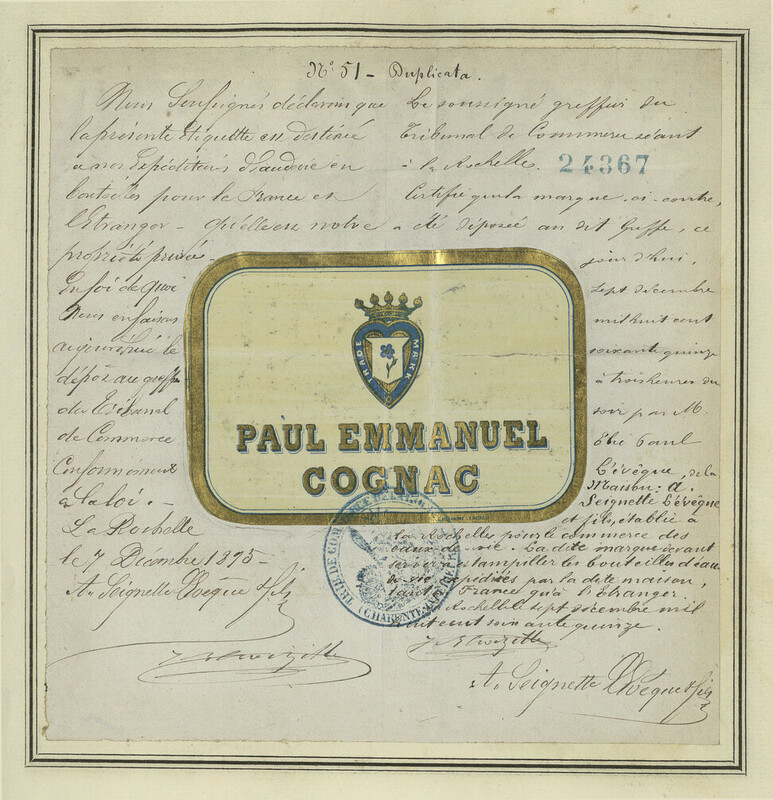 N° 51 - Duplicata.
Nous Soussignés déclarons que
la présente étiquette est destinée
à nos Expéditions d'Eaudevie en
bouteilles pour la France et
l'Étranger - qu'elle est notre
propriété privée -
En foi de quoi
Nous en faisons
aujourd'hui le
dépôt au greffe
du Tribunal
de Commerce
Conformément
à la loi.
La Rochelle
le 7 Décembre 1875 -
A. Seignette Lévêque & fils
Le soussigné greffier du
Tribunal de Commerce séant
à la Rochelle.
24367
Certifie que la marque ci-contre,
a été déposée au dit Greffe, ce
jour d'hui,
sept décembre
mil huit cent
soixante quinze
à trois heures du
soir par M.
Elie Paul
L'évêque, de la
Maison: A.
Seignette L'évêque
et fils, établie à
la Rochelle pour le commerce des
eaux-de-vie. La dite marque devant
servir à estampiller les bouteilles d'eau
de vie expédiées par la dite maison,
tant en France qu'à l'étranger.
La Rochelle le sept décembre mil
huit cent soixante quinze.
A. Seignette Lévêque & fils
TRADE MARK
PAUL EMMANUEL
COGNAC
TRIBUNAL DE COMMERCE DE LA ROCHELLE
(CHARENTE-INFÉRIEURE)